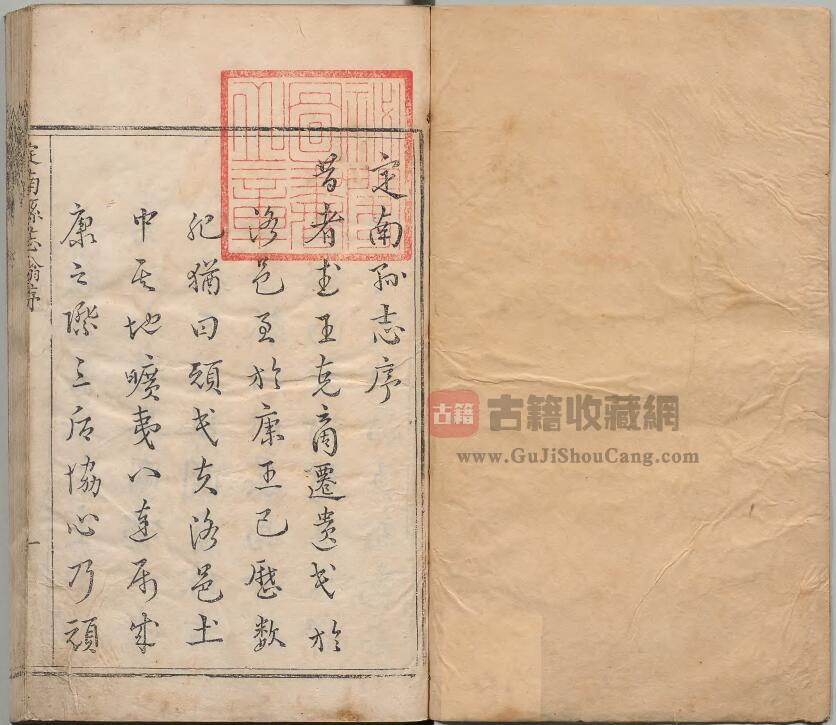 定南縣志序
昔者武王克商遷遺民於
洛邑至於康王已歷數
紀猶曰頑民夫洛邑土
中其地曠夷八達屬成
康之際三后協心乃頑
定南縣志翁序
一
秘閣圖書之章
古籍
古籍收藏網
www.GuJiShouCang.com